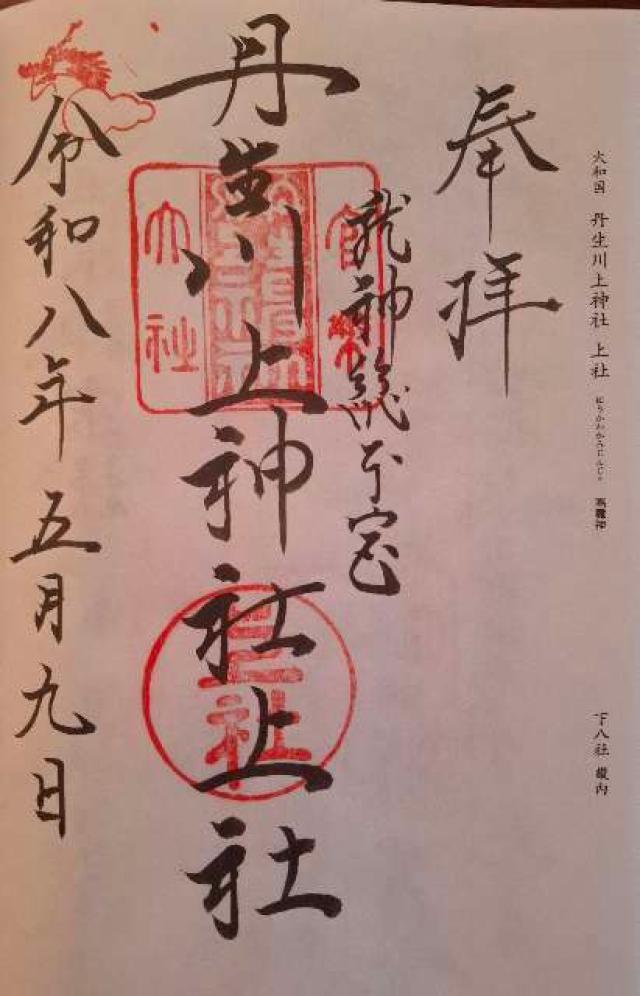 大和国 丹生川上神社 上社 にうかわかみじんじゃ 高龗神
下八社 畿内
奉拝
龍神総本宮
官幣大社
丹生川上神社上社
上社
令和八年五月九日